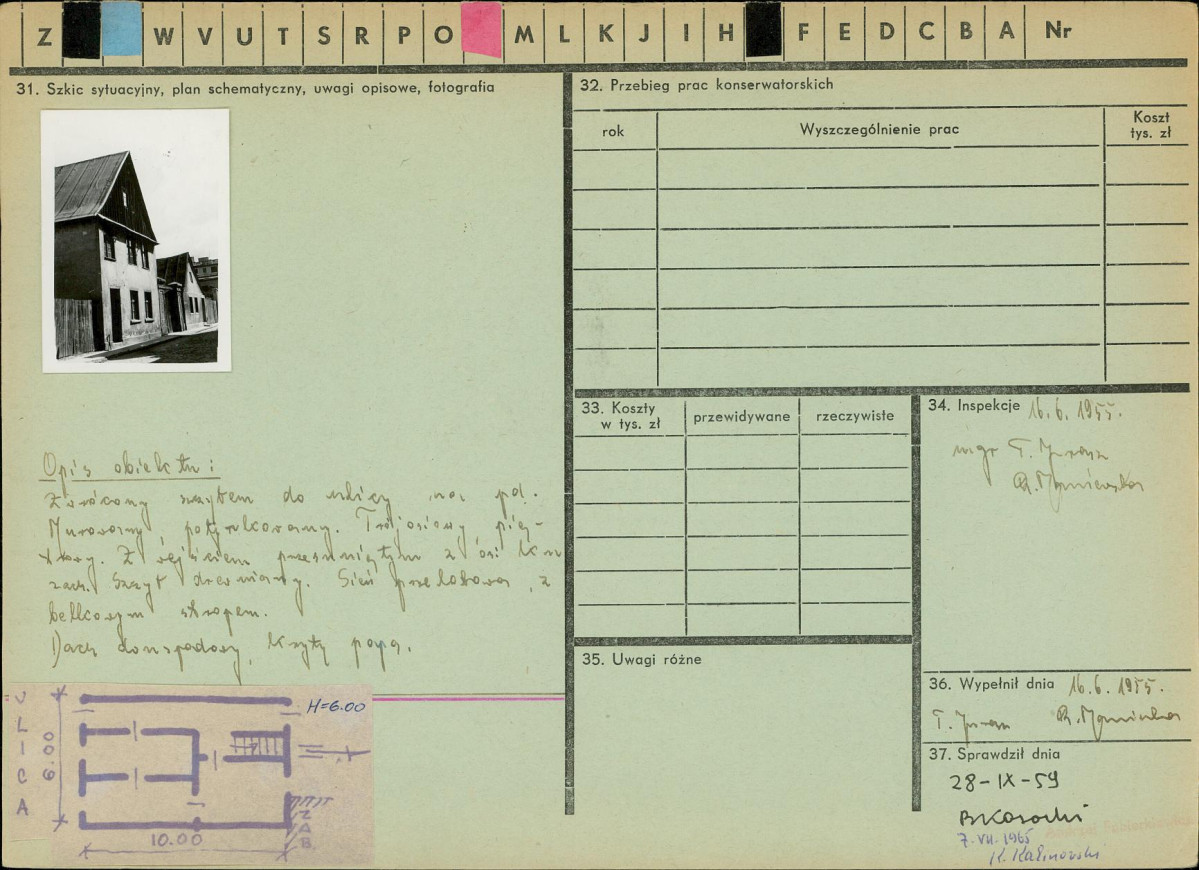 Z W V U T S R P O M L K J I H F E D C B A Nr
31. Szkic sytuacyjny, plan schematyczny, uwagi opisowe, fotografia
Opis obiektu:
Zwrócony szczytem do ulicy na pd.
Murowany, potynkowany. Trójosiowy, pię-
trowy. Z wejściem przesuniętym z osi ku
zach. Szczyt drewniany. Sień przelotowa, z
belkowym stropem.
Dach dwuspadowy, kryty papą.
ULICA
6.00
H=6.00
10.00
ZAB.
32. Przebieg prac konserwatorskich
rok
Wyszczególnienie prac
Koszt
tys. zł
33. Koszty
w tys. zł
przewidywane
rzeczywiste
34. Inspekcje 16.6.1955.
mgr T.
R.
35. Uwagi różne
36. Wypełnił dnia 16.6.1955.
T.
R.
37. Sprawdził dnia
28-IX-59
7.VII.1965
K. Kalinowski